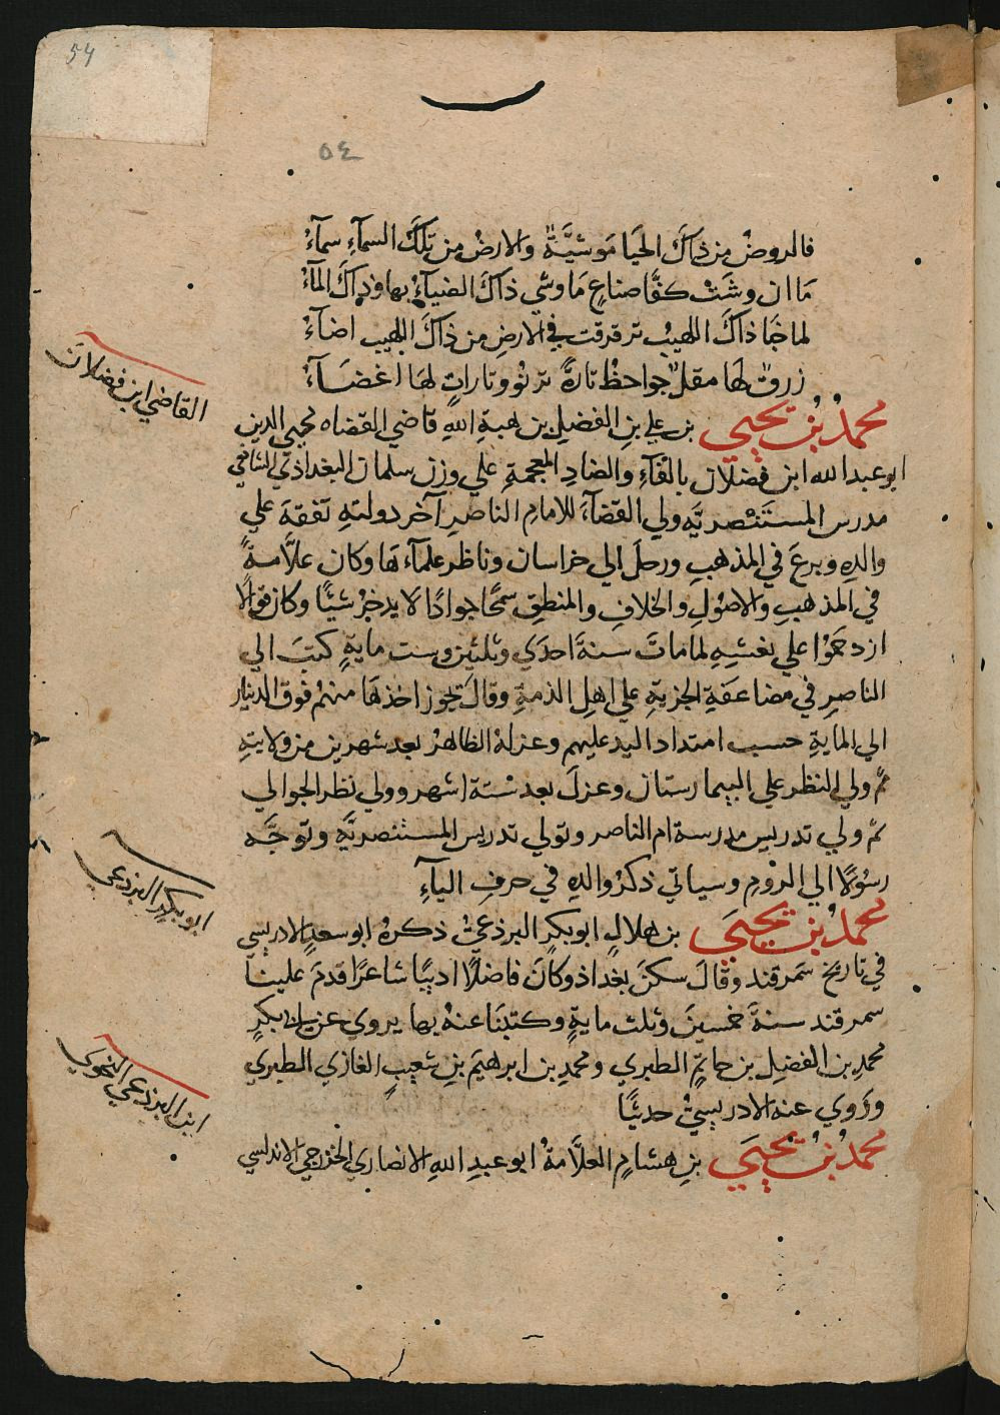 54
٥٤
فالروضُ من ذاكَ الحَيا مَوشيَّةٌ والارضُ من تلكَ السمآءِ سمآءُ
مَا ان وشَتْ كفَّا صناعٍ مَا وشي ذاكَ الضيآءُ بها وذاكَ المآءُ
لما خَبا ذاكَ اللهيبُ ترقرقت في الارضِ من ذاكَ اللهيب اضآءُ
زرقٌ لهَا مقلٌ جواحظُ تارةً ترنُو وتاراتٍ لهَا اغضَآءُ
محمدُ بنُ يحيَي بن علي بنِ الفضيلِ بن هبةِ اللهِ قاضي القضاه محيي الدين
ابو عبد الله ابن فضلان بالفآءِ والضادِ المعجمةِ علي وزن سلمان البغداذي الشافعي
مدرس المستَنْصريَّه ولي القضآءَ للامامِ الناصرِ آخر دولتهِ تفقهَ علي
والدِه وبرعَ في المذهبِ ورحلَ الي خراسان وناظر علمآءَهَا وكان علاَّمةً
في المذهبِ والاصُولِ والخلافِ والمنطقِ سمحًا جوادًا لا يدخرُ شيئًا وكان قوالا
ازدحمَوُا علي نعشهِ لما ماتَ سنةَ احدَي وثلثين وست مايةٍ كتبَ الي
الناصرِ في مضاعفةِ الجزيةِ علي اهلِ الذمةِ وقالَ يجوز اخذهَا منهُم فوق الدينار
الي المايةِ حسب امتداد اليد عليهم وعزلهُ الظاهرُ بعد شهرين من ولايتهِ
ثم ولي النظر علي البيمارستان وعزلَ بعد ستَة اشهرٍ وولي نظر الجوالي
ثم ولي تدريسَ مدرسة ام الناصر وتولي تدريس المستنصريَّةِ وتوجَّه
رسُولاً الي الرُومِ وسياتي ذكرُ والدِه في حرفِ اليآءِ
محمدُ بنُ يحيَي بن هلالٍ ابو بكرٍ البرذعيُّ ذكرهُ ابو سعدٍ الادريسي
في تاريخ سَمرقند وقالَ سكنَ بغداذ وكانَ فاضلاً اديبًا شاعرًا قدمَ علينا
سمرقند سنةَ خمسينَ وثلث مايةٍ وكتبنَا عنهُ بها يروي عن ابي بكرٍ
محمدِ بن الفضلِ بن حاتمٍ الطبري ومحمدِ بن ابرهيمَ بنِ شعيبٍ الغازي الطبري
ورَوي عنه الادريسيُّ حديثًا
محمدُ بنُ يحيَي بنِ هشامٍ العلاَّمةُ ابو عبدِ اللهِ الانصاري الخزرجي الاندلسي
القاضي ابن فضلان
ابو بكرٍ البرذعي
ابن البرذعي النحوي